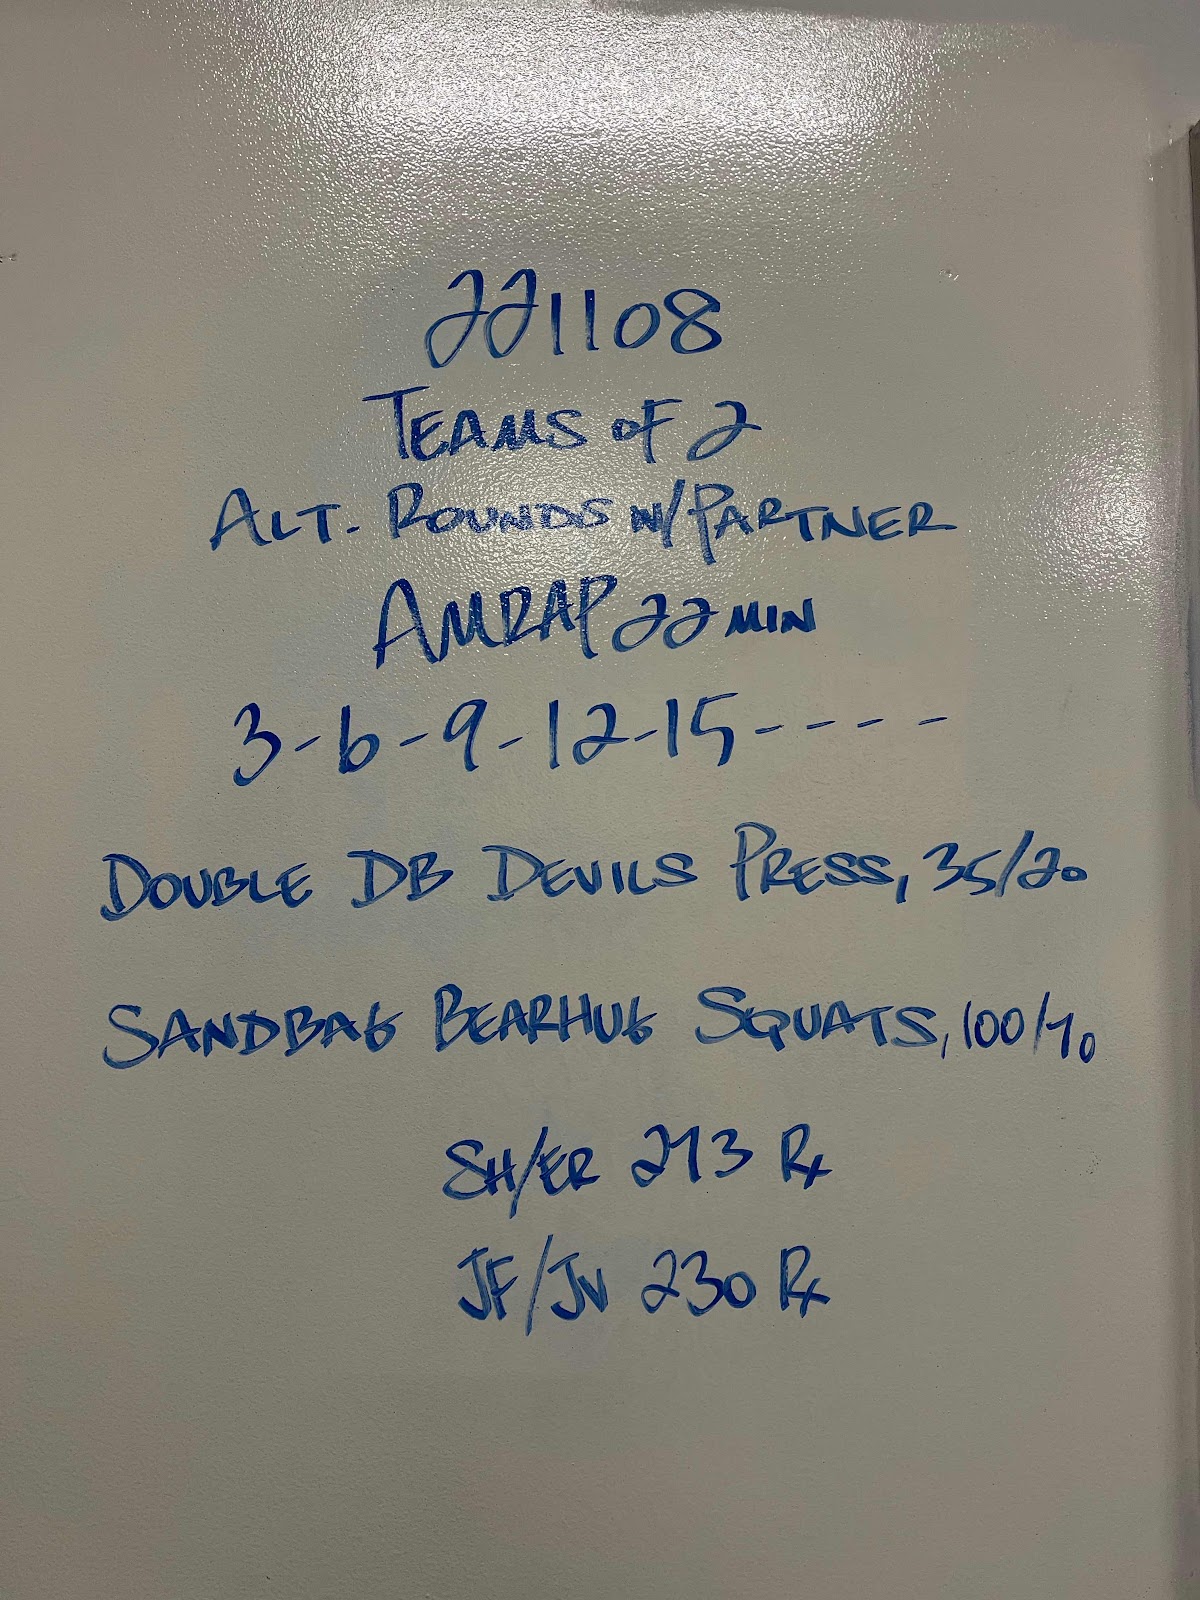 221108
TEAMS OF 2
ALT. ROUNDS W/PARTNER
AMRAP 22 MIN
3-6-9-12-15-----
DOUBLE DB DEVILS PRESS, 35/20
SANDBAG BEARHUG SQUATS, 100/70
SH/ER 273 Rx
JF/JV 230 Rx